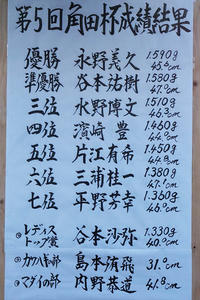 第5回角田杯成績結果
優勝 永野美久 1.590g 48.0cm
準優勝 谷本祐樹 1.580g 47.7cm
三位 水野博文 1.510g 46.3cm
四位 濱崎豊 1.460g 44.0cm
五位 片江有希 1.450g 44.9cm
六位 三浦桂一 1.380g 47.1cm
七位 平野芳幸 1.360g 46.0cm
レディストップ賞 谷本沙弥 1.330g 40.0cm
カワハギの部 島本侑飛 31.0cm
マダイの部 内野恭道 41.8cm